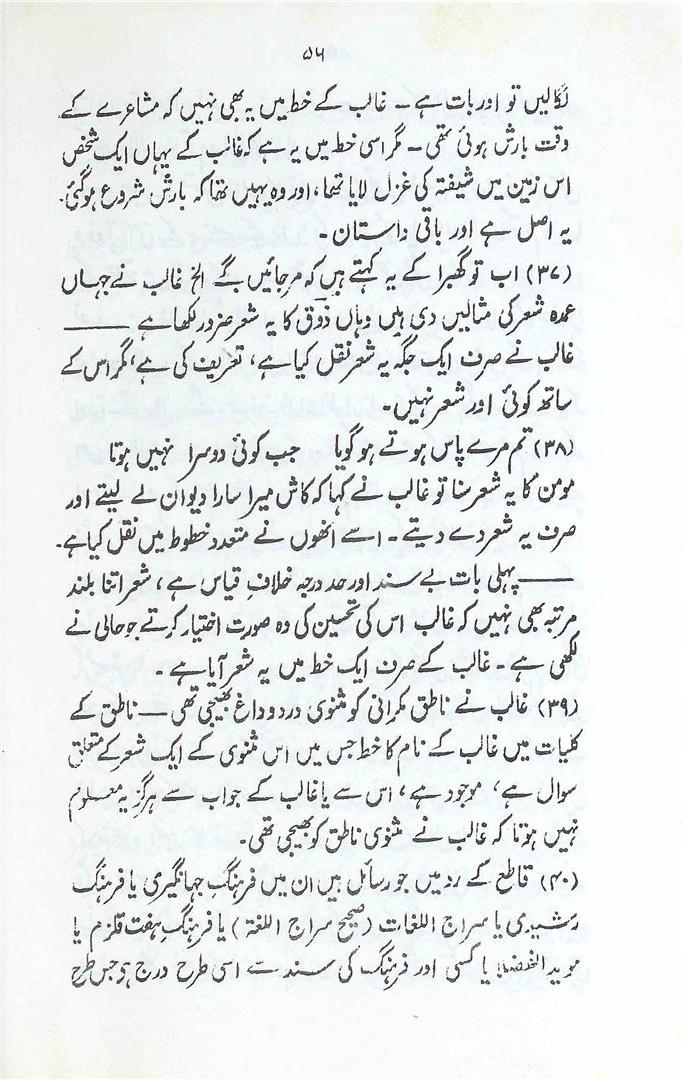 ۵۶
نکالیں تو اور بات ہے ۔ غالب کے خط میں یہ بھی نہیں کہ مشاعرے کے
وقت بارش ہوئی تھی ۔ مگر اسی خط میں یہ ہے کہ غالب کے یہاں ایک شخص
اس زمین میں شیفتہ کی غزل لایا تھا، اور وہ یہیں تھا کہ بارش شروع ہوگئی۔
یہ اصل ہے اور باقی داستان ۔
(۳۷) اب تو گھبرا کے یہ کہتے ہیں کہ مرجائیں گے الخ غالب نے جہاں
عمدہ شعر کی مثالیں دی ہیں وہاں ذوق کا یہ شعر ضرور لکھا ہے ———
غالب نے صرف ایک جگہ یہ شعر نقل کیا ہے، تعریف کی ہے، مگر اس کے
ساتھ کوئی اور شعر نہیں۔
(۳۸) تم مرے پاس ہوتے ہو گویا جب کوئی دوسرا نہیں ہوتا
مومن کا یہ شعر سنا تو غالب نے کہا کہ کاش میرا سارا دیوان لے لیتے اور
صرف یہ شعر دے دیتے ۔ اسے انھوں نے متعدد خطوط میں نقل کیا ہے۔
——— پہلی بات بے سند اور حد درجہ خلافِ قیاس ہے، شعر اتنا بلند
مرتبہ بھی نہیں کہ غالب اس کی تحسین کی وہ صورت اختیار کرتے جو حالی نے
لکھی ہے ۔ غالب کے صرف ایک خط میں یہ شعر آیا ہے ۔
(۳۹) غالب نے ناطق مکرانی کو مثنوی درد و داغ بھیجی تھی —— ناطق کے
کلیات میں غالب کے نام کا خط جس میں اس مثنوی کے ایک شعر کے متعلق
سوال ہے، موجود ہے، اس سے یا غالب کے جواب سے ہرگز یہ معلوم
نہیں ہوتا کہ غالب نے مثنوی ناطق کو بھیجی تھی۔
(۴۰) قاطع کے رد میں جو رسائل ہیں ان میں فرہنگِ جہانگیری یا فرہنگ
رشیدی یا سراج اللغات (صحیح سراج اللغۃ) یا فرہنگِ ہفت قلزم یا
موید الفضلا یا کسی اور فرہنگ کی سند سے اسی طرح درج ہو جس طرح